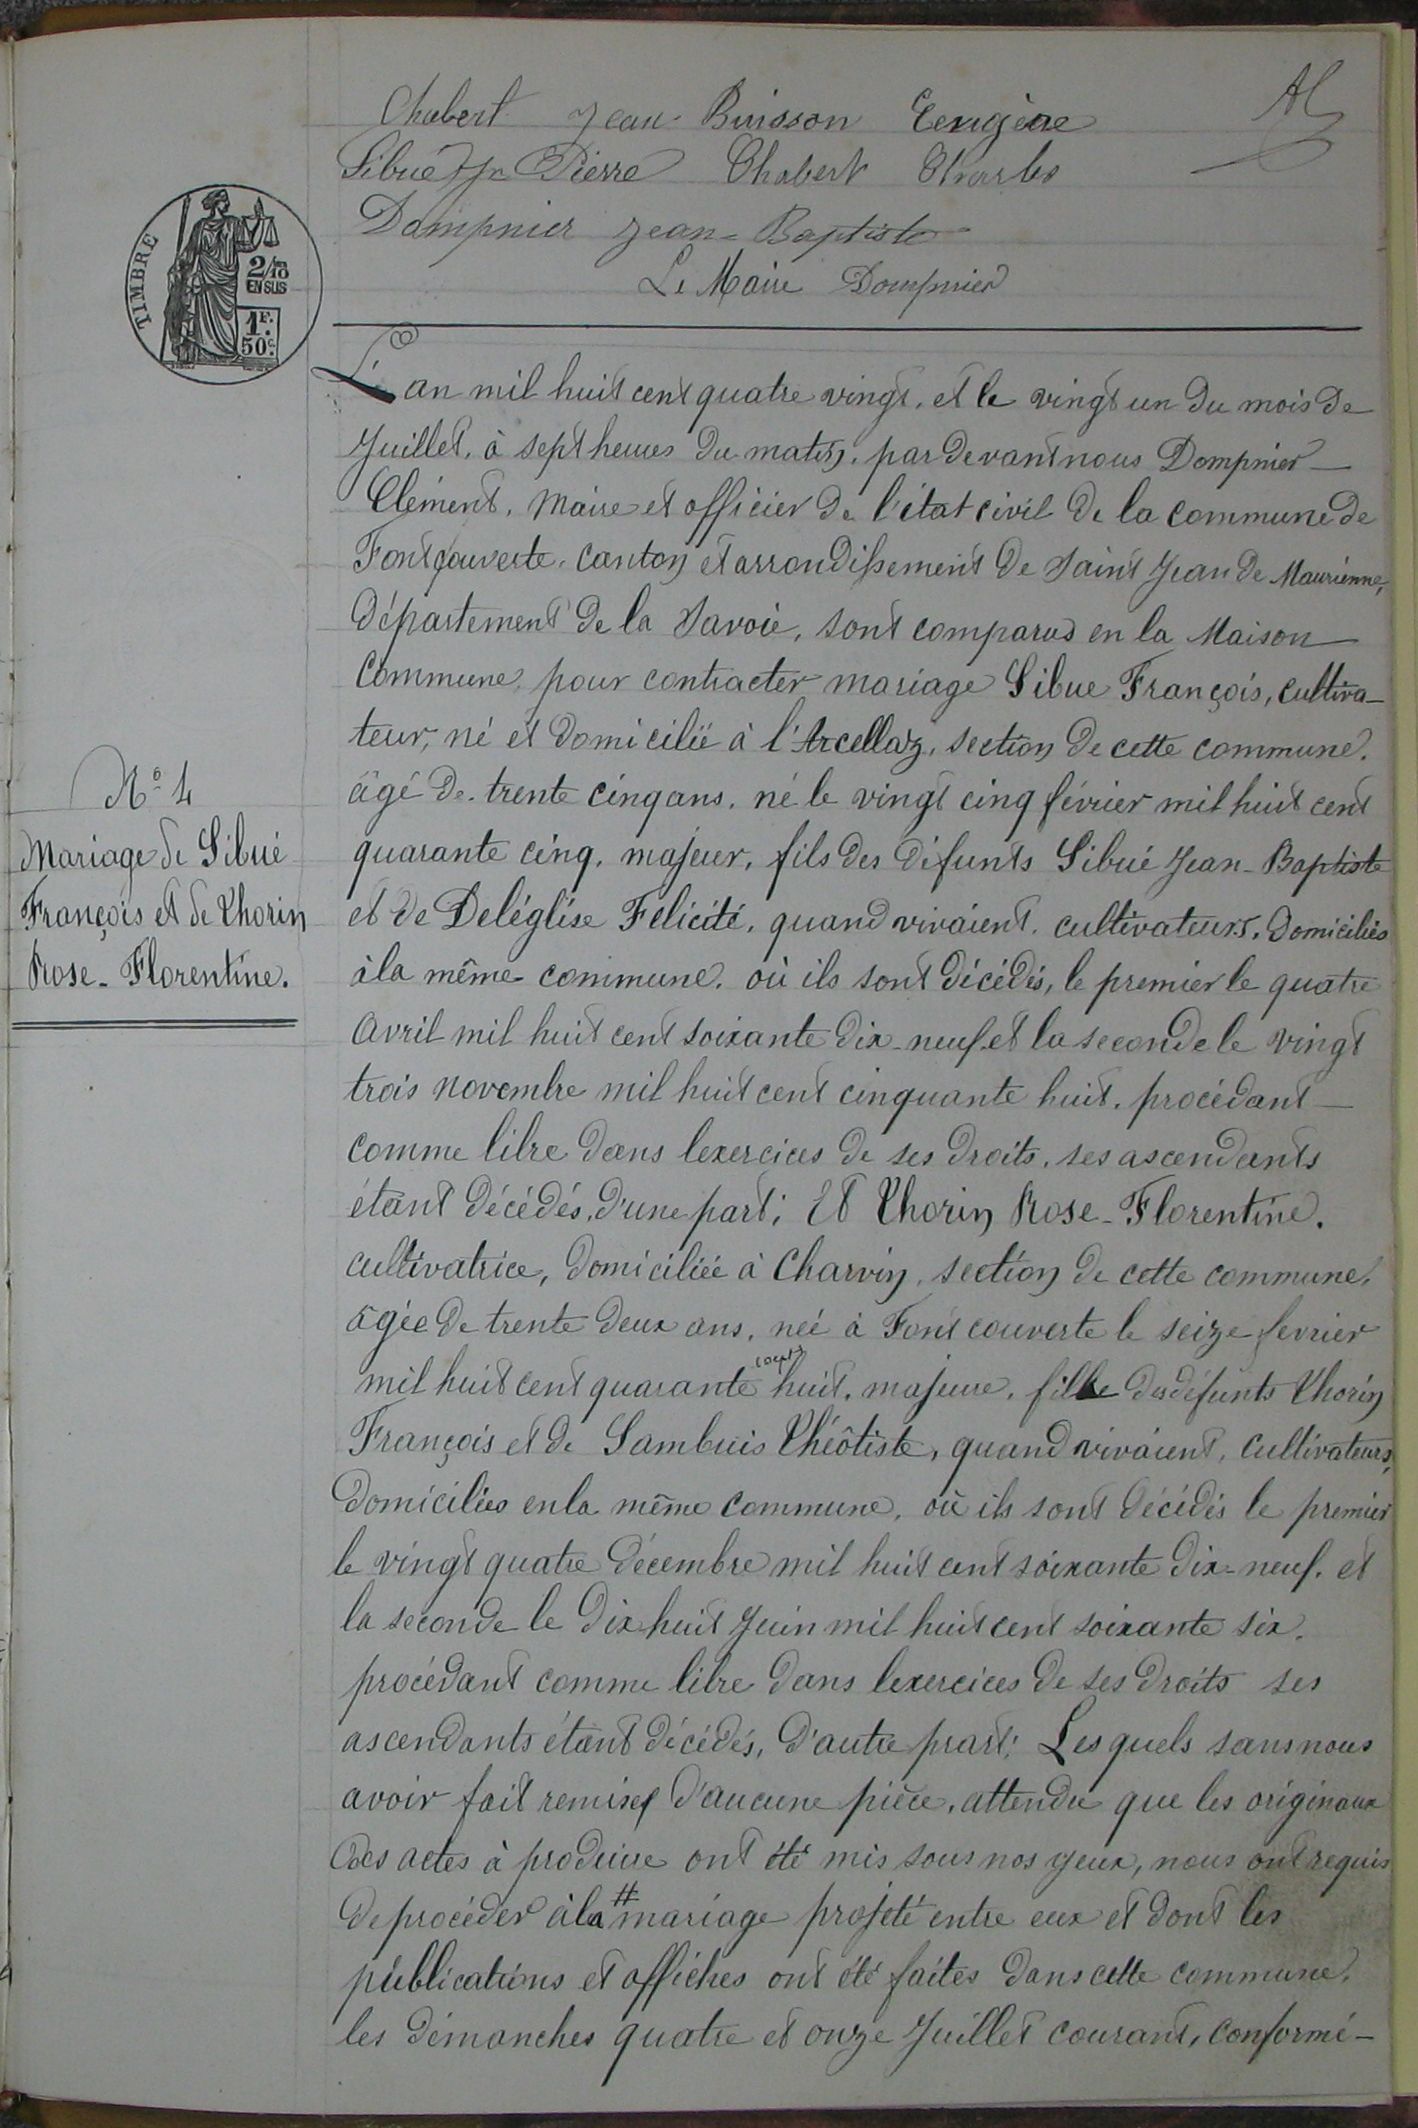 Chabert Jean Buisson Eexugène
Sibué Jn Pierre Chabert Charles
Dompnier Jean-Baptiste
Le Maire Dompnier
TIMBRE
2/10 EN SUS
1F. 50c.
L'an mil huit cent quatre vingt, et le vingt un du mois de
Juillet, à sept heures du matin, par devant nous Dompnier
Clément, Maire et officier de l'état civil de la commune de
Fontcouverte, canton et arrondissement de Saint Jean de Maurienne,
département de la Savoie, sont comparus en la Maison
Commune, pour contracter mariage Sibue François, cultiva-
teur, né et domicilié à l'Arcellaz, section de cette commune,
âgé de trente cinq ans, né le vingt cinq février mil huit cent
quarante cinq, majeur, fils des défunts Sibué Jean-Baptiste
et de Deléglise Felicité, quand vivaient, cultivateurs, domiciliés
à la même commune, où ils sont décédés, le premier le quatre
Avril mil huit cent soixante dix-neuf et la seconde le vingt
trois novembre mil huit cent cinquante huit, procédant
comme libre dans lexercices de ses droits, ses ascendants
étant décédés, d'une part; Et Thorin Rose-Florentine,
cultivatrice, domiciliée à Charvin, section de cette commune,
âgée de trente deux ans, neé à Fontcouverte le seize fevrier
mil huit cent quarante huit, majeure, fille des défunts Thorin
François et de Sambuis Théôtiste, quand vivaient, cultivateurs,
domiciliés en la même commune, où ils sont décédés le premier
le vingt quatre décembre mil huit cent soixante dix-neuf, et
la seconde le dix huit Juin mil huit cent soixante six,
procédant comme libre dans lexercices de ses droits ses
ascendants étant décédés, d'autre part; Lesquels sans nous
avoir fait remise d'aucune pièce, attendu que les originaux
des actes à produire ont été mis sous nos yeux, nous ont requis
de procéder à la # mariage projeté entre eux et dont les
publications et affiches ont été faites dans cette commune,
les dimanches quatre et onze Juillet courant, conformé-
No 4
Mariage de Sibué
François et de Thorin
Rose-Florentine.